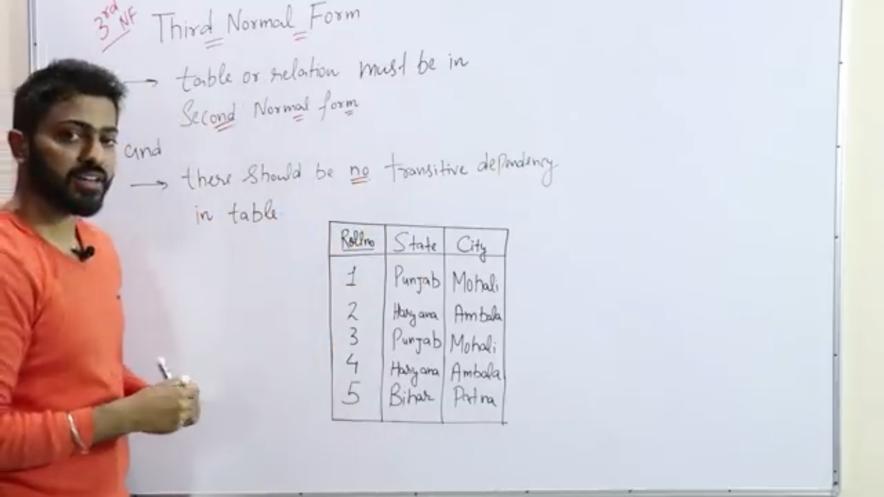 3rd NF
Third Normal Form
→ table or relation must be in
Second Normal form
and
→ there should be no transitive dependency
in table
Rollno State City
1 Punjab Mohali
2 Haryana Ambala
3 Punjab Mohali
4 Haryana Ambala
5 Bihar Patna